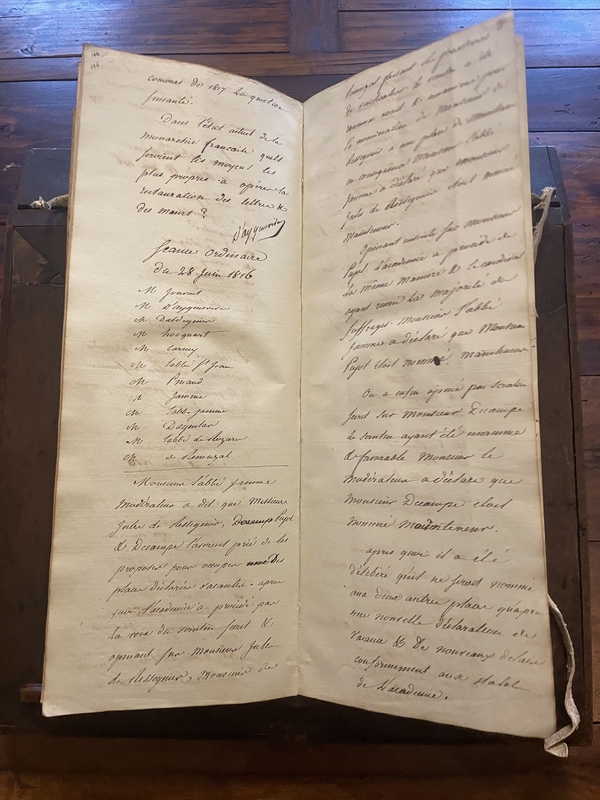 concours de 1817 La question
suivante.
Dans l'état actuel de la
monarchie française quels
seroient les moyens les
plus propres à opérer la
restauration des lettres &
des mœurs?
D'ayguesvives
Seance ordinaire
du 28 Juin 1816
M Jouvent
M D'ayguesvives
M
M hocquart
M Carney
M l'abbé St Jean
M Pinaud
M Jamme
M l'abbé Jamme
M
M l'abbé de Rozieres
M de Remuzat
Monsieur l'abbé Jamme
modérateur a dit que Messieurs
Jules de Resseguier, Pujol
& Decampe l'avoient prié de les
proposer pour occuper une des
places déclarées vacantes. après
quoi l'academie a procédé par
la voie du scrutin secret &
opinant sur Monsieur Jules
de Resseguier, Monsieur de
de
la nomination de Monsieur de
Resseguier
en conséquence Monsieur l'abbé
Jamme a déclaré que monsieur
Jules de Resseguier étoit nommé
mainteneur.
Opinant ensuite sur Monsieur
Pujol l'academie a procédé de
la même maniere & le candidat
ayant réuni la majorité de
suffrages Monsieur l'abbé
Jamme a déclaré que Monsieur
Pujol étoit nommé mainteneur
On a enfin opiné par scrutin
secret sur Monsieur Decampe
le scrutin ayant été unanime
& favorable Monsieur le
modérateur a déclaré que
Monsieur Decampe étoit
nommé mainteneur.
après quoi il a été
délibéré qu'il ne seroit nommé
aux deux autres places qu'après
une nouvelle déclaration de
vacance & de nouveaux délais
conformément aux statuts
de l'academie.